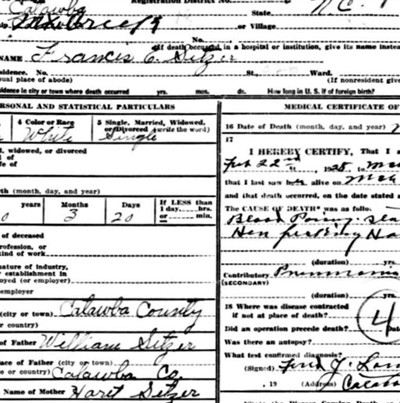 Registration District No.
Catawba State N.C.
or Village
(If death occurred in a hospital or institution, give its name instead
NAME Francis C. Setzer
Residence. No. St. Ward.
(Usual place of abode) (If nonresident give
Residence in city or town where death occurred yrs. mos. ds. How long in U. S. if of foreign birth?
PERSONAL AND STATISTICAL PARTICULARS
MEDICAL CERTIFICATE OF
4 Color or Race
5 Single, Married, Widowed, or Divorced (write the word)
White Single
16 Date of Death (month, day, and year)
17
I HEREBY CERTIFY, That I
widowed, or divorced
of
of
Feb 22nd, 1928, to Mch
that I last saw h alive on Mch
and that death occurred, on the date stated
(month, day, and year)
months days If LESS than
1 day, hrs.
or min.
3 20
The CAUSE OF DEATH* was as follows:
Blood Poising
Hen pecking
of deceased
profession, or
kind of work
(duration) yrs.
nature of industry,
or establishment in
employed (or employer)
employer
Contributory Pneumonia
(SECONDARY)
(duration) yrs.
(city or town) Catawba County
or country)
18 Where was disease contracted
if not at place of death?
4
Did an operation precede death? Date
of Father William Setzer
Was there an autopsy?
What test confirmed diagnosis?
Place of Father (city or town)
or country) Catawba Co
(Signed) Fred Y. Lon
, 19 (Address) Catawba
Name of Mother Haret Setzer